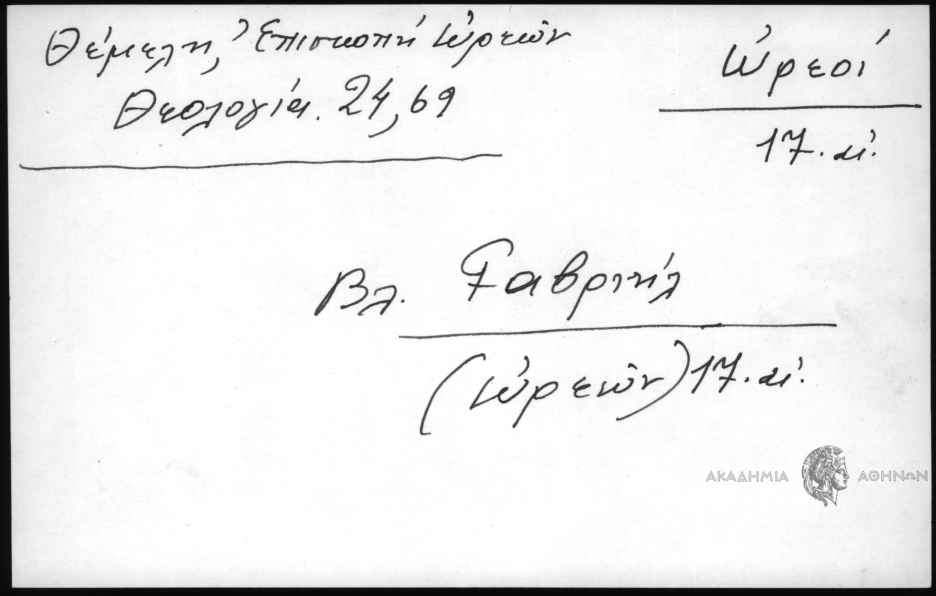 Θέμελη, Ἐπισκοπή Ὠρεῶν
Θεολογία. 24, 69
Ὠρεοί
17. αἰ.
Βλ. Γαβριήλ
(Ὠρεῶν) 17. αἰ.
ΑΚΑΔΗΜΙΑ ΑΘΗΝΩΝ